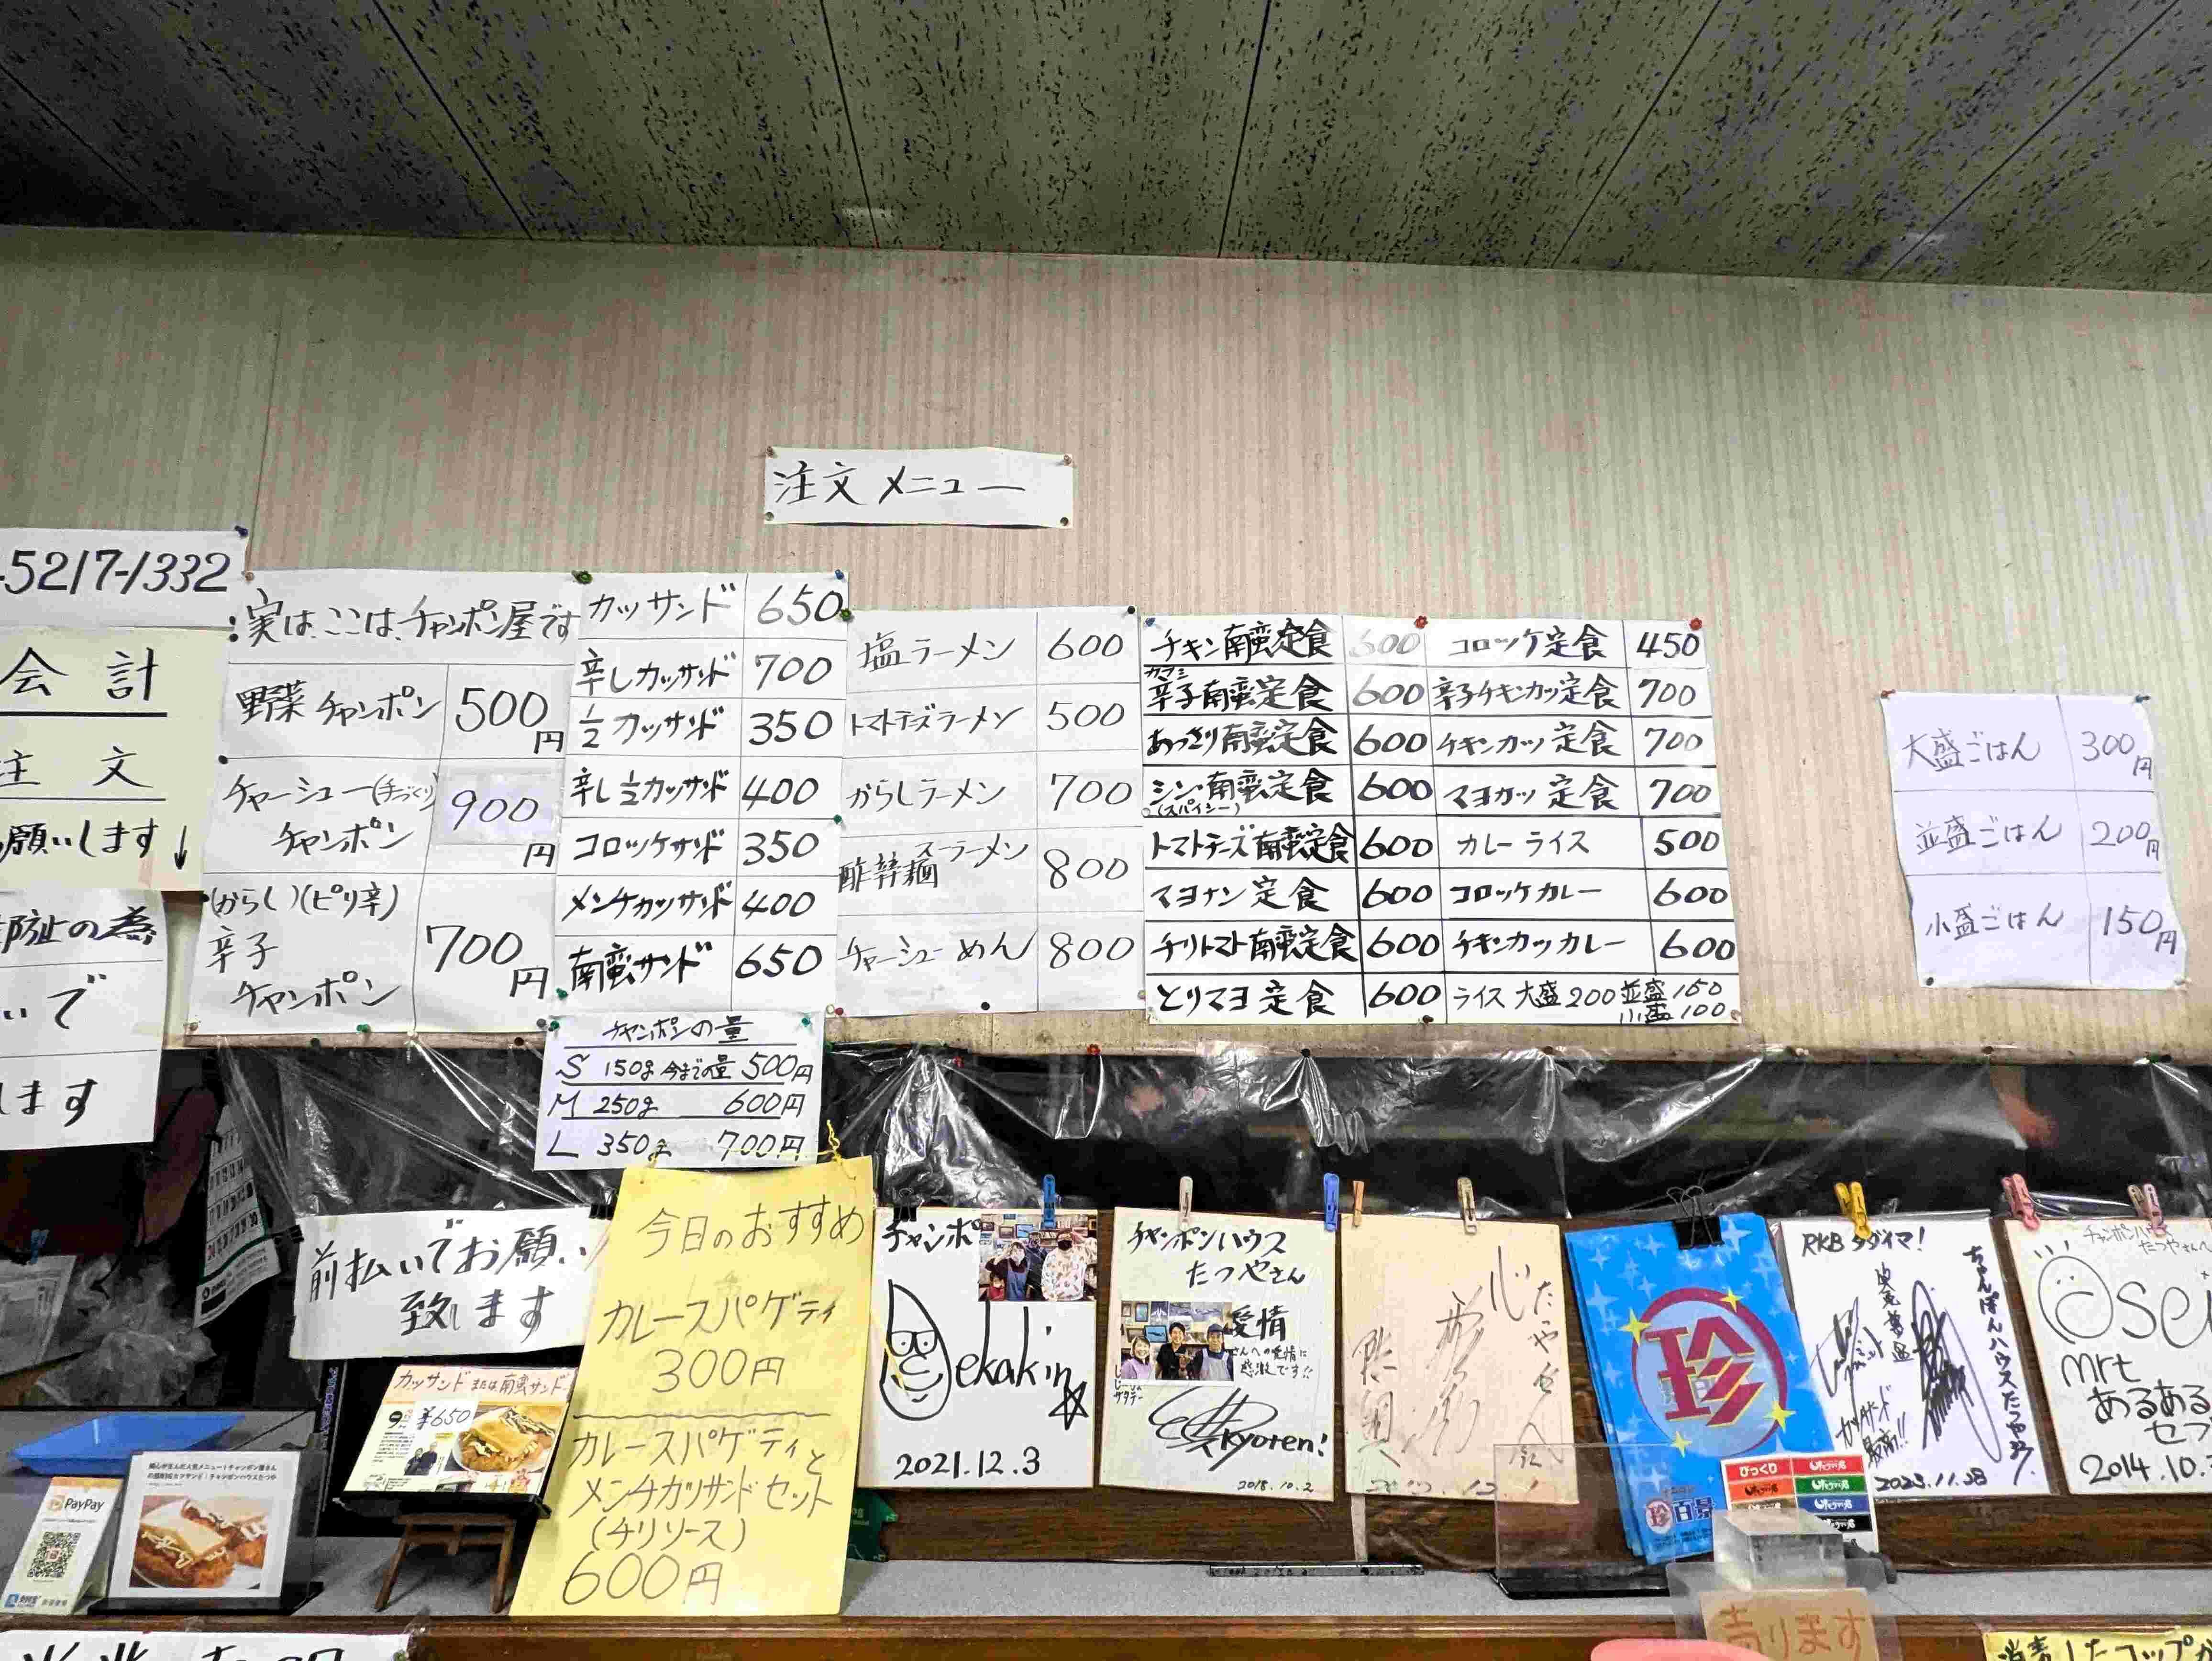 注文メニュー
-5217-1332
会計
注文
願いします↓
防止の為
いで
します
実は、ここは、チャンポン屋です
野菜チャンポン 500円
チャーシュー(手づくり)
チャンポン 900円
(からし)(ピリ辛)
辛子
チャンポン 700円
カッサンド 650
辛しカッサンド 700
1/2カッサンド 350
辛し1/2カッサンド 400
コロッケサンド 350
メンチカッサンド 400
南蛮サンド 650
塩ラーメン 600
トマトチーズラーメン 500
からしラーメン 700
スーラーメン
800
チャーシューめん 800
チキン南蛮定食 600 コロッケ定食 450
カラシ
辛子南蛮定食 600 辛子チキンカツ定食 700
あっさり南蛮定食 600 チキンカツ定食 700
シン・南蛮定食 600 マヨカツ定食 700
(スパイシー)
トマトチーズ南蛮定食 600 カレーライス 500
マヨナン定食 600 コロッケカレー 600
チリトマト南蛮定食 600 チキンカツカレー 600
とりマヨ定食 600 ライス 大盛200 並盛150
小盛100
大盛ごはん 300円
並盛ごはん 200円
小盛ごはん 150円
チャンポンの量
S 150g 今までの量 500円
M 250g 600円
L 350g 700円
前払いでお願い
致します
今日のおすすめ
カレースパゲティ
300円
カレースパゲティと
メンチカッサンドセット
(チリソース)
600円
カッサンド または南蛮サンド
¥650
PayPay
チャンポ
ekakin
2021.12.3
チャンポンハウス
たつやさん
愛情
さんへの愛情に
感激です!!
Kyoren!
2018.10.2
心
たつやさんへ
珍
珍百景
RKB タダイマ!
ちゃんぽんハウスたつや
カツサンド
最高!!
2023.11.28
チャンポンハウス
たつやさんへ
mrt
あるある
セブ
2014.10.
びっくり
売ります